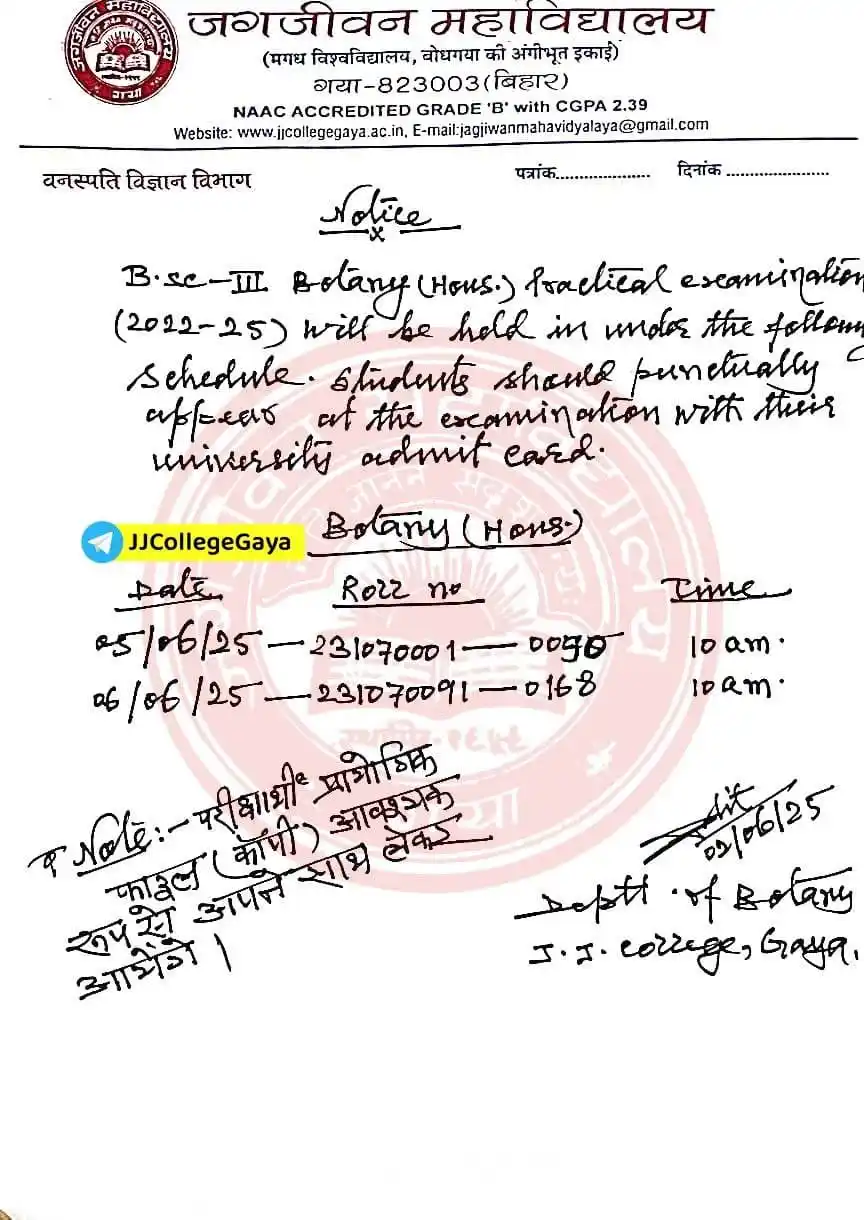 जगजीवन महाविद्यालय
(मगध विश्वविद्यालय, बोधगया की अंगीभूत इकाई)
गया-823003(बिहार)
NAAC ACCREDITED GRADE 'B' with CGPA 2.39
Website: www.jjcollegegaya.ac.in, E-mail:jagjiwanmahavidyalaya@gmail.com
वनस्पति विज्ञान विभाग
पत्रांक..................... दिनांक .......................
Notice
x
B.sc-III Botany (Hons.) Practical examination
(2022-25) will be held in under the following
schedule. Students should punctually
appear at the examination with their
university admit card.
JJCollegeGaya
Botany (Hons.)
Date Roll no Time
05/06/25 — 231070001 — 0090 10 am.
06/06/25 — 231070091 — 0168 10 am.
Note:- परीक्षार्थी प्रायोगिक
फाइल (कॉपी) आवश्यक
रूप से अपने साथ लेकर
आयेंगे।
02/06/25
Deptt. of Botany
J.J. college, Gaya.